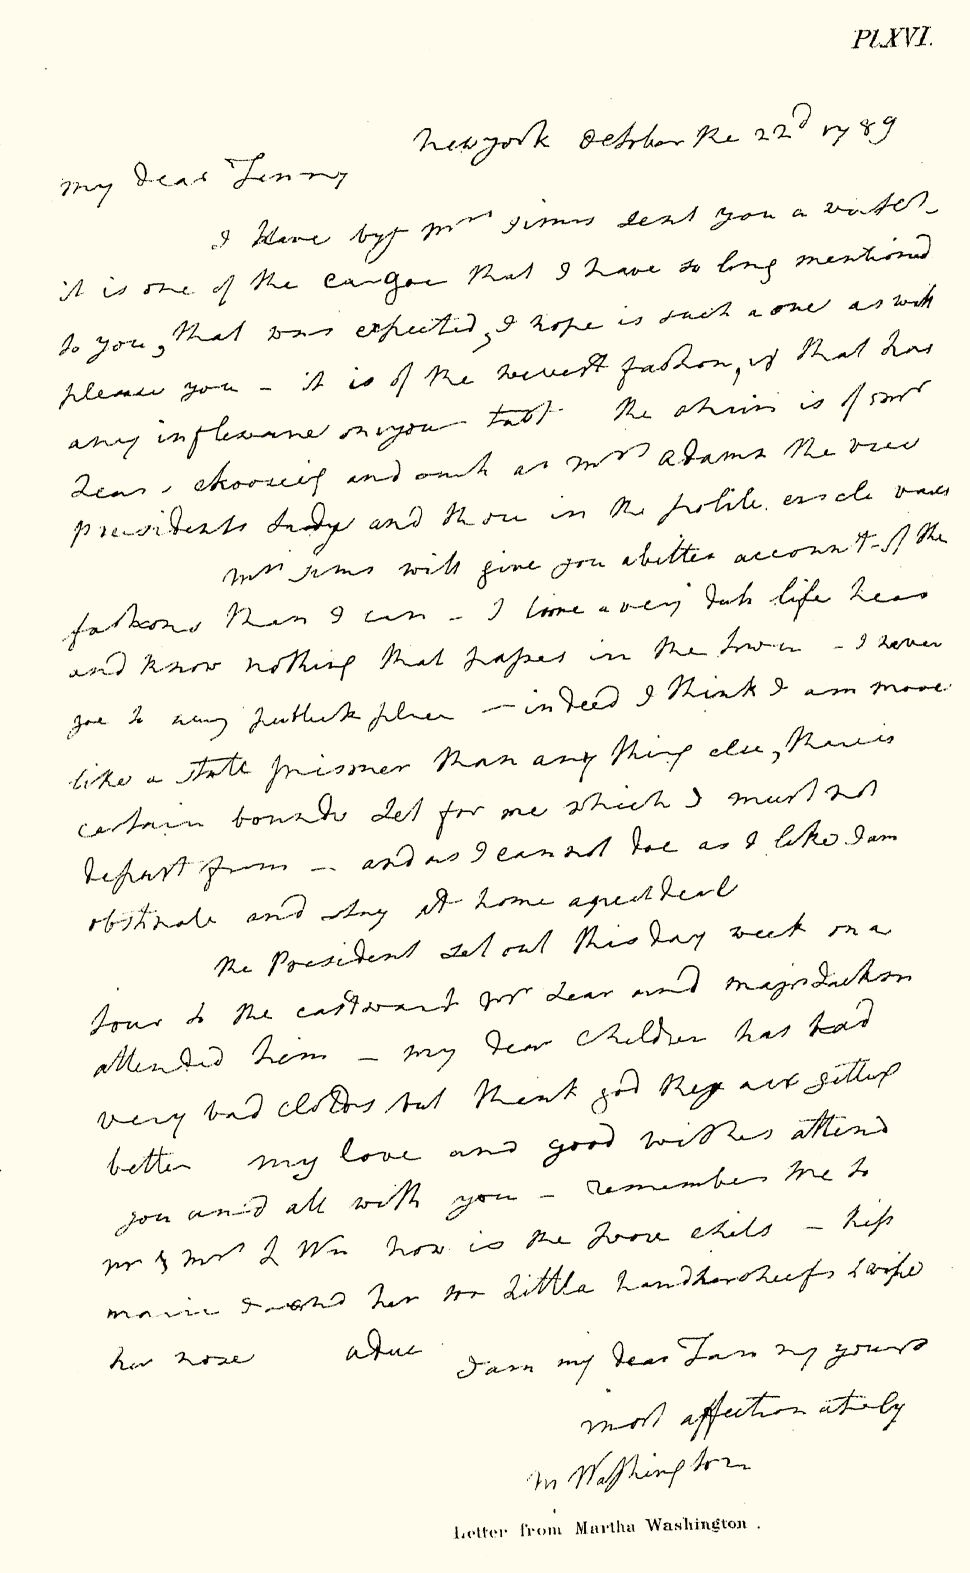 Pl.XVI.
New york October the 22d 1789
my dear Fanny
I have by Mrs Sims sent you a watch
it is one of the cargoe that I have so long mentioned
to you, that was expected, I hope is such a one as will
please you – it is of the newest fashon, if that has
any influence on your tast The chain is of mr
Lears choosing and such as Mrs Adams the vice
presidents Lady and those in the polite circle wares
Mrs Sims will give you a better account of the
fashons than I can – I live a very dull life hear
and know nothing that passes in the town – I never
goe to any publick place – indeed I think I am more
like a state prisoner than any thing else, there is
certain bounds set for me which I must not
depart from – and as I cannot doe as I like I am
obstinate and stay at home a great deal
The President set out this day week on a
tour to the eastward Mr Lear and major Jackson
attended him – my dear Children has had
very bad colds but thank god they are getting
better my love and good wishes attend
you and all with you – remember me to
mr & mrs L Wn how is the poor child – kiss
maria I send her two little handkerchiefs to wipe
her nose adue I am my dear Fanny yours
most affectionately
M Washington
Letter from Martha Washington .